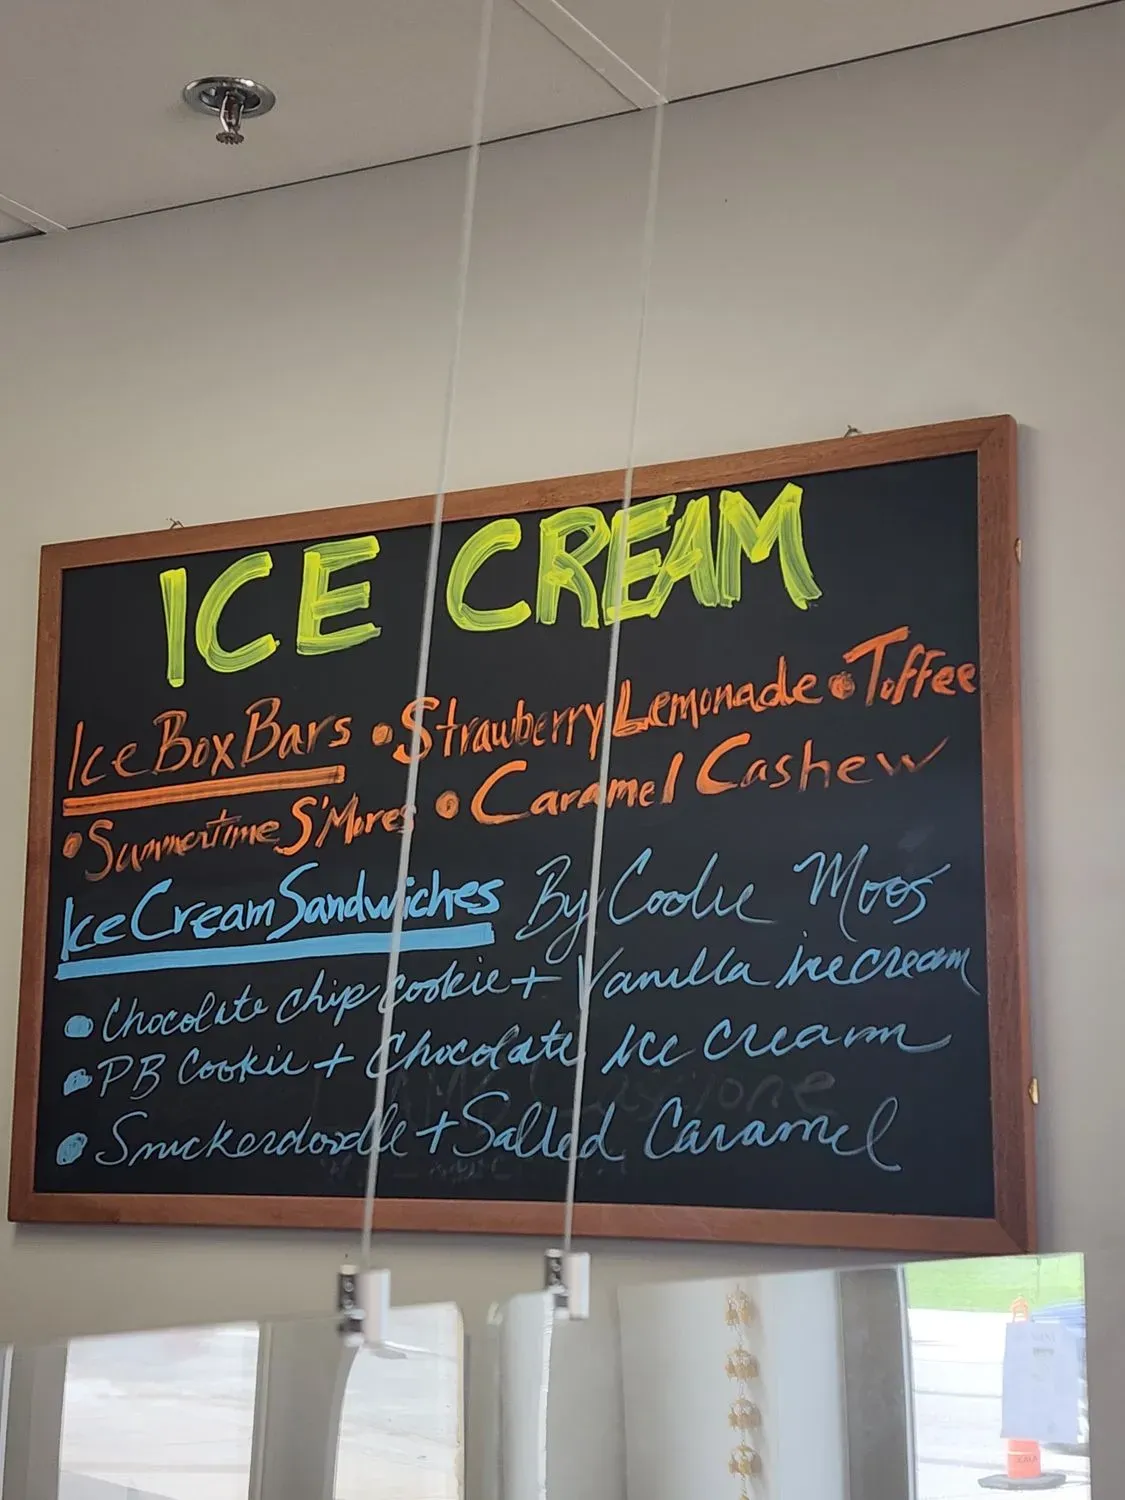 ICE CREAM
Ice Box Bars • Strawberry Lemonade • Toffee
• Summertime S'Mores • Caramel Cashew
Ice Cream Sandwiches By Cookie Moos
• Chocolate chip cookie + Vanilla ice cream
• PB Cookie + Chocolate Ice cream
• Snickerdoodle + Salted Caramel